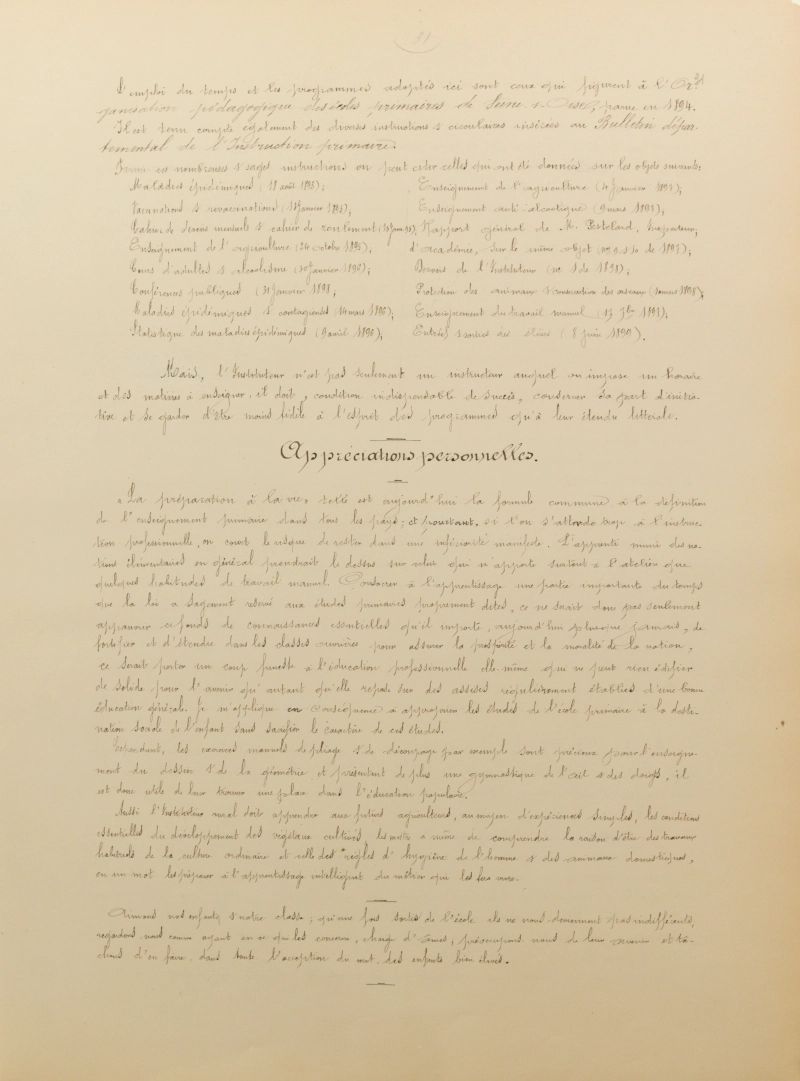 L'emploi du temps et les programmes adoptés ici sont ceux qui figurent à l'Or-
ganisation pédagogique des écoles primaires de Seine & Oise, parue en 1894.
Il est tenu compte également des diverses instructions & circulaires insérées au Bulletin dépar-
temental de l'Instruction primaire.
Parmi ces nombreuses & sages instructions on peut citer celles qui ont été données sur les objets suivants:
Maladies épidémiques (18 août 1893);
Enseignement de l'agriculture (4 janvier);
Vaccinations & revaccinations (janvier);
Enseignement anti-alcoolique (9 mars);
Cahier de devoirs mensuels & cahier de roulement;
Rapport général de M. Inspecteur
Enseignement de l'agriculture (24 octobre 1895);
d'académie, sur le même objet;
Cours d'adultes & alcoolisme (janvier);
Devoirs de l'Instituteur;
Conférences publiques (31 janvier);
Protection des animaux & conservation des oiseaux;
Maladies épidémiques & contagieuses (14 mars);
Enseignement du travail manuel;
Statistique des maladies épidémiques (9 avril);
Entrée & sorties des élèves (8 juin 1890).
Mais, l'Instituteur n'est pas seulement un instructeur auquel on impose un horaire
et des matières à enseigner; il doit, condition indispensable de succès, conserver sa part d'initia-
tive et se garder d'être moins fidèle à l'esprit des programmes qu'à leur étendue littérale.
Appréciations personnelles.
« La préparation à la vie » telle est aujourd'hui la formule commune à la définition
de l'enseignement primaire dans tous les pays; et pourtant, si l'on s'attarde trop à l'instruc-
tion professionnelle, on court le risque de rester dans une infériorité manifeste. L'apprenti muni des no-
tions élémentaires en général prendrait le dessus sur celui qui n'apporte surtout à l'atelier que
quelques habitudes de travail manuel. Consacrer à l'apprentissage une partie importante du temps
que la loi a sagement réservé aux études primaires proprement dites, ce ne serait donc pas seulement
appauvrir ce fonds de connaissances essentielles qu'il importe, aujourd'hui plus que jamais, de
fortifier et d'étendre dans les classes ouvrières pour assurer la prospérité et la moralité de la nation,
ce serait porter un coup funeste à l'éducation professionnelle elle-même qui ne peut rien édifier
de solide pour l'avenir qu'autant qu'elle repose sur des assises régulièrement établies d'une bonne
éducation générale. Je m'applique en conséquence à approprier les études de l'école primaire à la desti-
nation sociale de l'enfant sans sacrifier le caractère de ces études.
Cependant, les exercices manuels de pliage & de découpage par exemple sont précieux pour l'enseigne-
ment du dessin & de la géométrie, et présentent de plus une gymnastique de l'œil & des doigts, il
est donc utile de leur trouver une place dans l'éducation populaire.
Aussi l'Instituteur rural doit apprendre aux futurs agriculteurs, au moyen d'expériences simples, les conditions
essentielles du développement des végétaux cultivés, les mettre à même de comprendre la raison d'être des travaux
habituels de la culture ordinaire et celle des règles d'hygiène de l'homme & des animaux domestiques,
en un mot les préparer à l'apprentissage intelligent du métier qui les fera vivre.
Aimons nos enfants & notre classe; qu'une fois sortis de l'école ils ne nous deviennent pas indifférents,
regardons nous comme ayant en ce qui les concerne, charge d'âmes; préoccupons nous de leur avenir et tâ-
chons d'en faire, dans toute l'acception du mot, des enfants bien élevés.